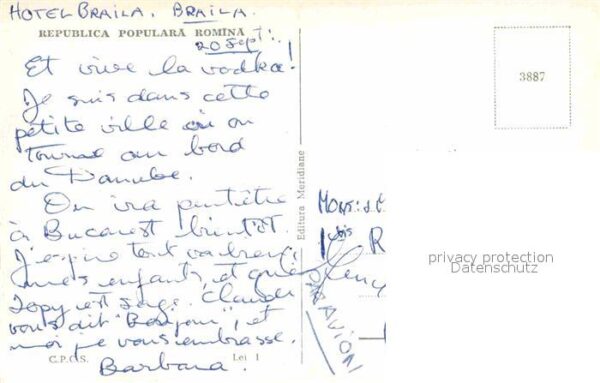 HOTEL BRAILA. BRAILA.
REPUBLICA POPULARĂ ROMÎNĂ
20 Sept.
Et vive la vodka!
Je suis dans cette
petite ville où on
tourne au bord
du Danube.
On ira peutêtre
à Bucarest bientôt.
J'espère tout va bien,
mes enfants, et que
Zopy est sage. Claude
vous dit "Bonjour", et
moi je vous embrasse.
Barbara.
C.P.C.S. Lei 1
Editura Meridiane
3887
1 bis R
privacy protection
Datenschutz
PAR AVION